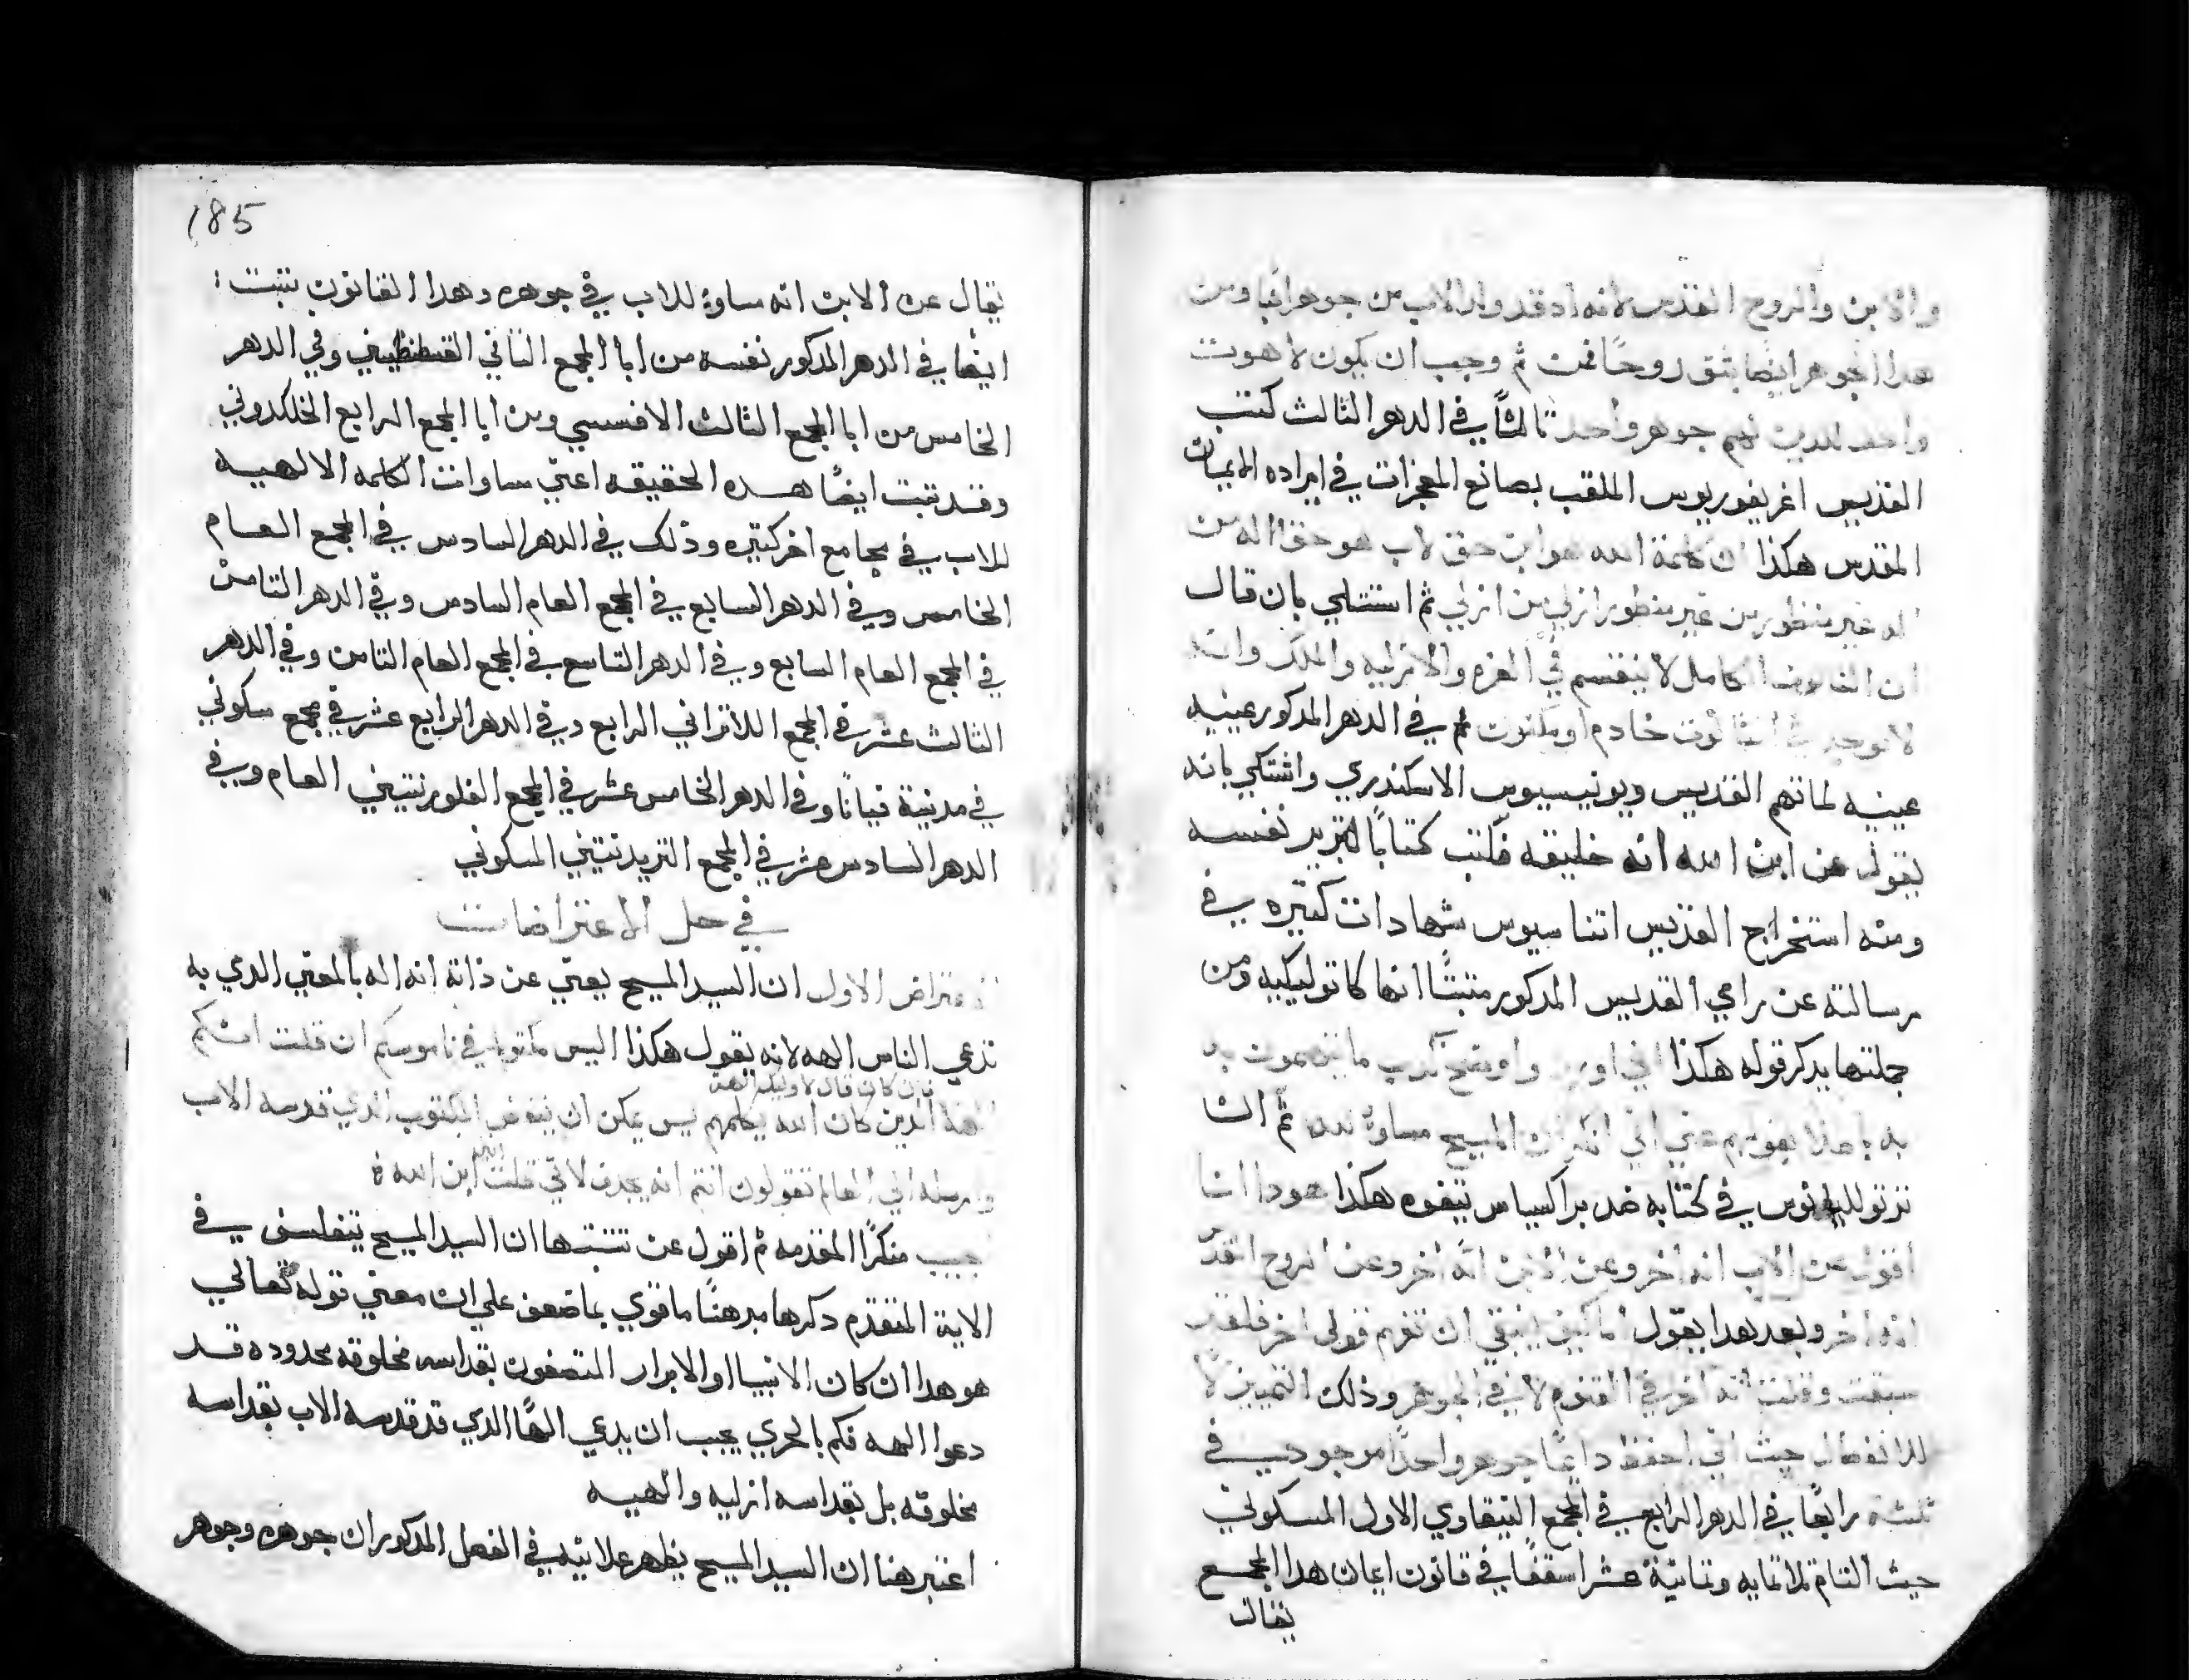 والابن والروح القدس لانه اد قد ولد الاب من جوهر ابنا ومن
هدا الجوهر ايضا بثق روحا فمن ثم وجب ان يكون لاهوت
واحد للدين لهم جوهر واحد ثالثاً في الدهر الثالث كتب
القديس اغريغوريوس الملقب بصانع المعجزات في ايراده الايمان
المقدس هكذا ان كلمة الله هو ابن حق لاب هو حق اله من
اله غير منظور من غير منظور ازلي من ازلي ثم استتلي بان قال
ان الثالوث الكامل لا ينقسم في العزه والازليه والملك وانه
لا يوجد في الثالوث خادم او مكنون ثم في الدهر المدكور عينيه
عينيه لما اتهم القديس ديونيسيوس الاسكندري واشتكي بانه
يقول عن ابن الله انه خليقه فكتب كتابًا لتبرير نفسه
ومنه استخراج القديس اتناسيوس شهادات كتيره في
رسالته عن راي القديس المدكور متبتًا انها كاتوليكيه ومن
جملتها يدكر قوله هكذا اني اورد واوضح كدب ما يتهموت به
به باطلا بقولهم عني اني انكر ان المسيح مساوٍ لله ثم ان
ترتولليانوس في كتابه ضد براكسياس يتفوه هكذا هودا انا
اقول عن الاب انه اخر وعن الابن انه اخر وعن الروح القدس
انه اخر وبعد هدا يقول اما كيف ينبغي ان تفهم قولي اخر فلقد
سبقت وقلت انه اخر في القنوم لا في الجوهر وذلك التمييز لا
للانفصال حيث اني احفظ دايمًا جوهر واحدًا موجود في
ثلثه رابعًا في الدهر الرابع في المجمع النيقاوي الاول المسكوني
حيث التام تلاتمايه وتمانية عشر اسقفًا في قانون ايمان هدا المجمع
يقال
185
يقال عن الابن انه مساوٍ للاب في جوهره وهدا القانون تتبت
ايضًا في الدهر المدكور نفسه من ابا المجمع التاني القسطنطيني وفي الدهر
الخامس من ابا المجمع الثالث الافسسي ومن ابا المجمع الرابع الخلكدوني
وقد تبت ايضًا هده الحقيقه اعني مساوات الكلمه الالهيه
للاب في مجامع اخر كتيره وذلك في الدهر السادس في المجمع العام
الخامس وفي الدهر السابع في المجمع العام السادس وفي الدهر التامن
في المجمع العام السابع وفي الدهر التاسع في المجمع العام التامن وفي الدهر
الثالث عشر في المجمع اللاتراني الرابع وفي الدهر الرابع عشر في مجمع سكوني
في مدنية فيانا وفي الدهر الخامس عشر في المجمع الفلورنتيني العام وفي
الدهر السادس عشر في المجمع التريدنتيني المسكوني
في حل الاعتراضات
الاعتراض الاول ان السيد المسيح يعني عن ذاته انه اله بالمعني الدي به
تدعي الناس الهه لانه يقول هكذا اليس مكتوبا في ناموسكم ان قلت انكم
فان كان قال لاوليك الهه
الهه الدين كان الله يكلمهم ليس يمكن ان ينقض المكتوب الدي قدسه الاب
وارسله الي العالم تقولون انتم انه يجدف لاني قلت اني ابن الله
اجيب منكرًا المقدمه ثم اقول عن تتبتها ان السيد المسيح يتفلسف في
الاية المتقدم دكرها مبرهنًا ما قوي بما ضعف علي ان معني قوله تعالي
هو هدا ان كان الانبيا او الابرار المتصفون بقداسه مخلوقه محدوده قد
دعوا الهه فكم بالحري يجب ان يدعي الهًا الدي قد قدسه الاب بقداسه
مخلوقه بل بقداسه ازليه والهيه
اعتبر هنا ان السيد المسيح يظهر علانيه في الفصل المدكور ان جوهره وجوهر